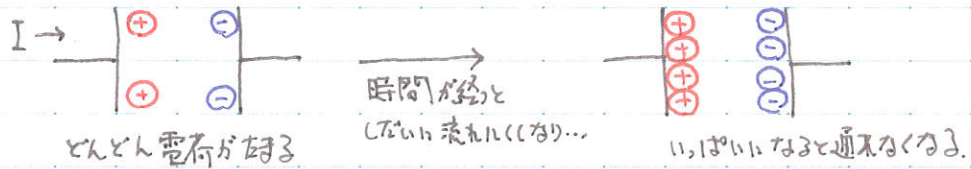 I →
⊕ ⊖
⊕ ⊖
どんどん電荷がたまる
時間が経つと
しだいに流れにくくなり…
⊕ ⊖
⊕ ⊖
⊕ ⊖
⊕ ⊖
いっぱいになると通れなくなる.